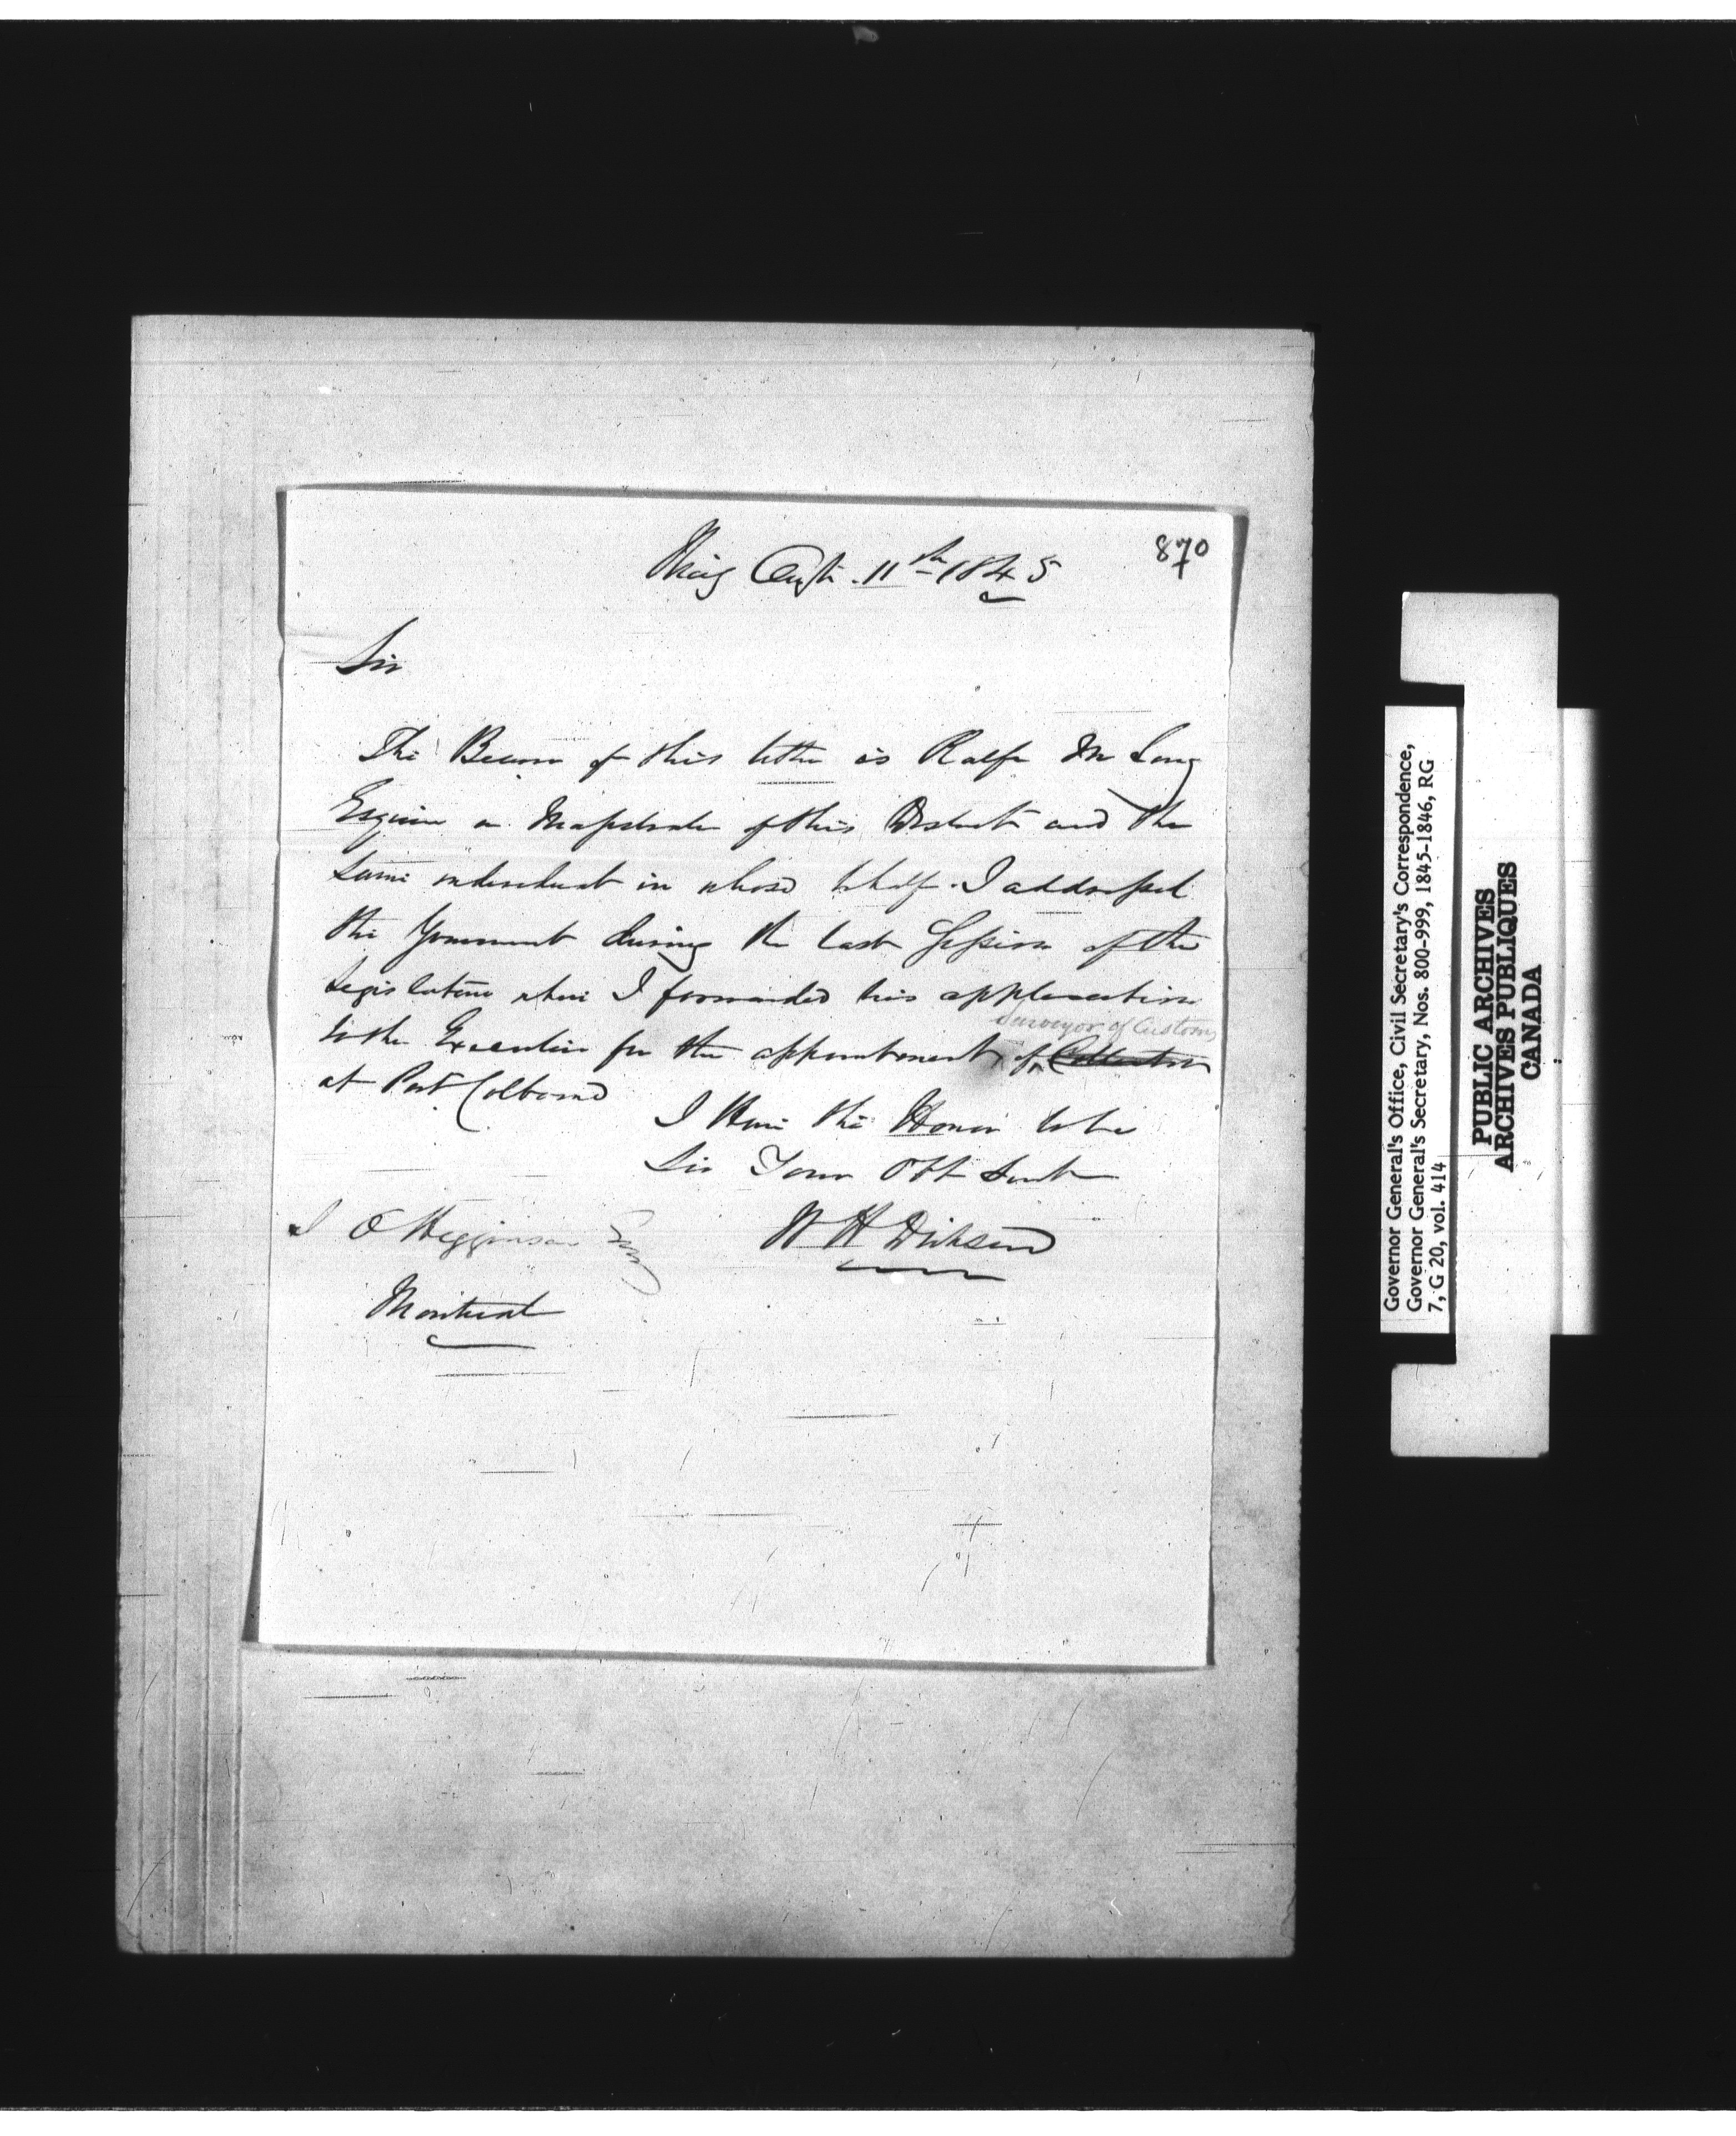 870
11th 1845
Sir
The Bearer of this letter is Ralfe M Long
Esquire a Magistrate of this District and the
Same individual in whose behalf I addressed
the Government during the last Session of the
Legislature when I forwarded his application
Surveyor of Customs
to the Executive for the appointment of Collector
at Port Colborne
I Have the Honor to be
Sir Your Obt Servt
W H Dickson
J O Higginson Esq
Montreal
Governor General's Office, Civil Secretary's Correspondence,
Governor General's Secretary, Nos. 800-999, 1845-1846, RG
7, G 20, vol. 414
PUBLIC ARCHIVES
ARCHIVES PUBLIQUES
CANADA